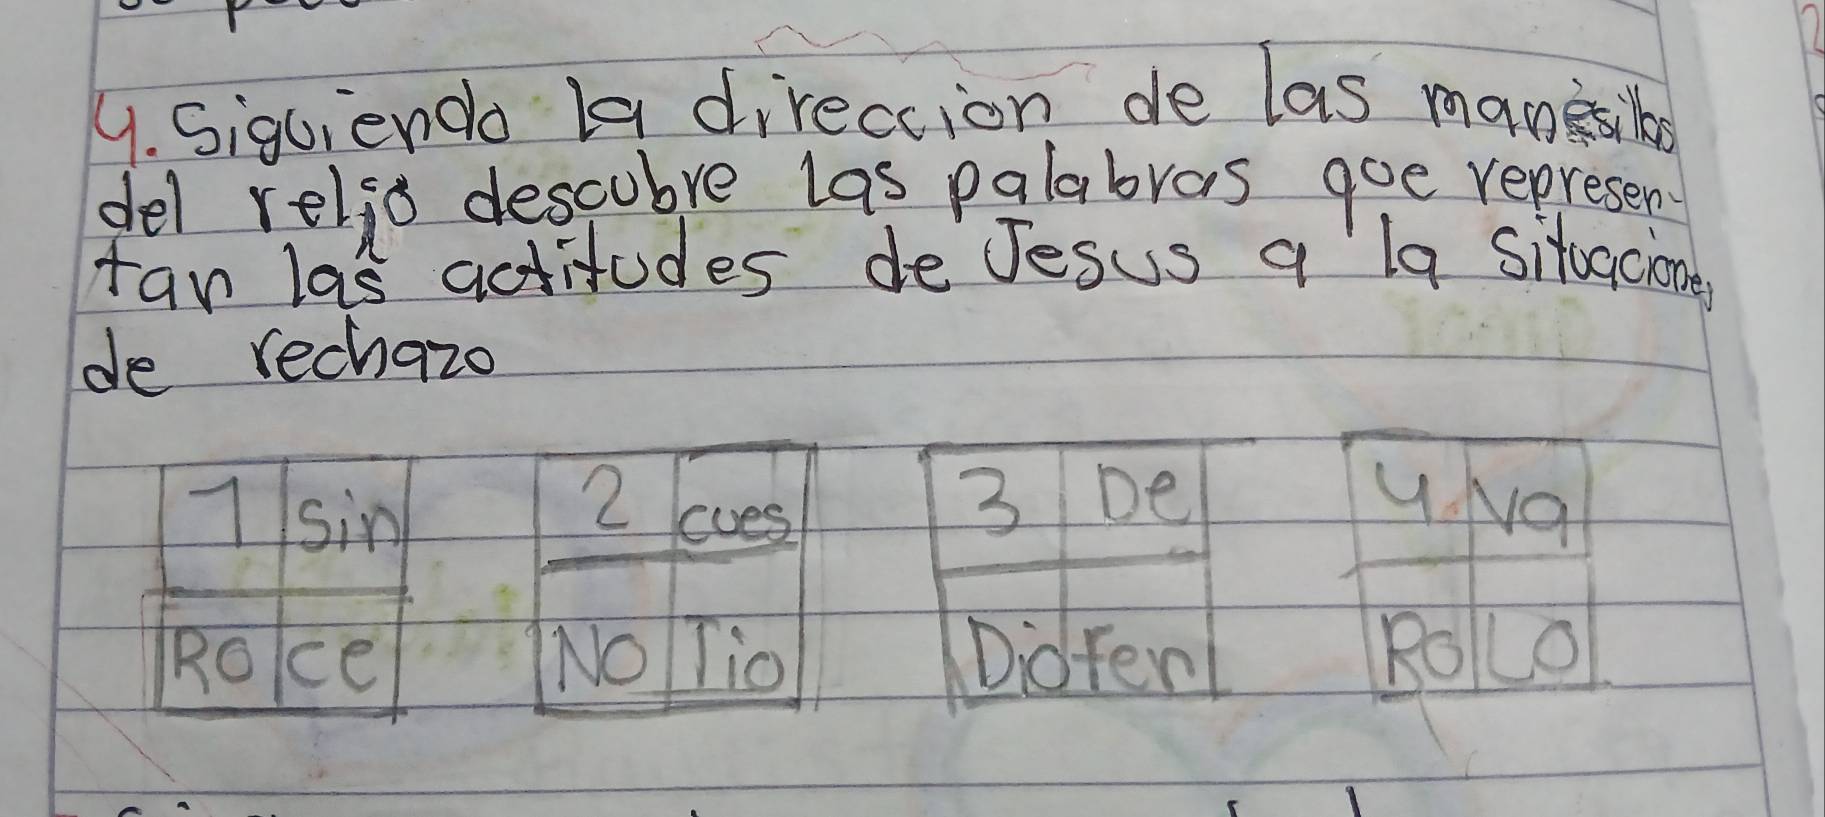 4. Siguiendo la direccion de las manesillas
del reljo descubre las palabras que represen-
tan las actitudes de Jesus a la situaciones
de rechazo
1 sin 2 cues 3 De 4. Va
Ro ce No Tio Dio fen Ro Lo